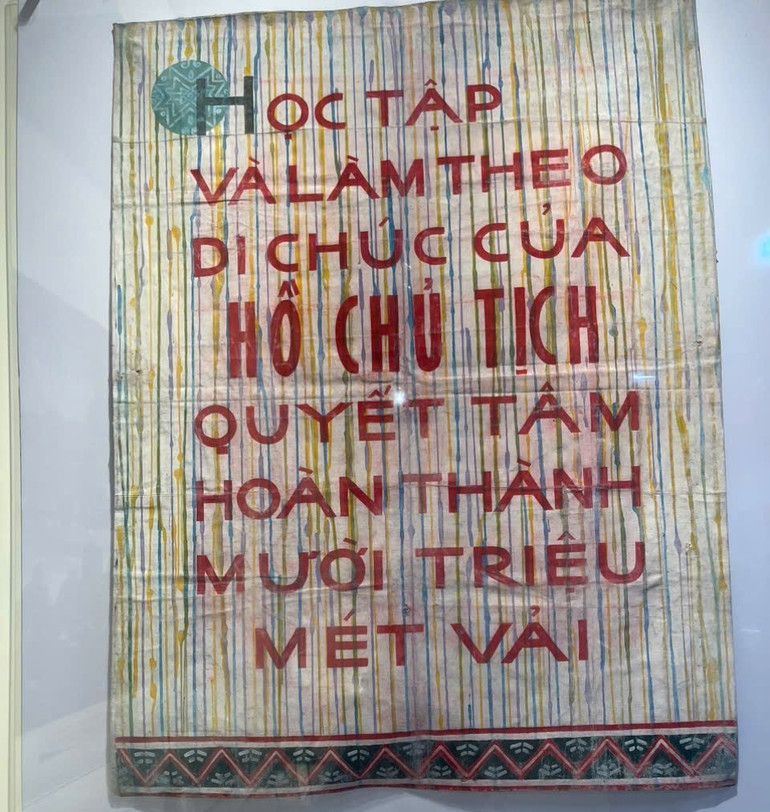 HỌC TẬP
VÀ LÀM THEO
DI CHÚC CỦA
HỒ CHỦ TỊCH
QUYẾT TÂM
HOÀN THÀNH
MƯỜI TRIỆU
MÉT VẢI